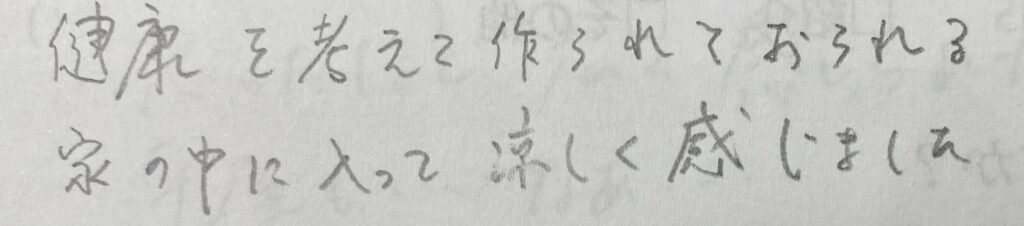 健康を考えて作られておられる
家の中に入って涼しく感じました